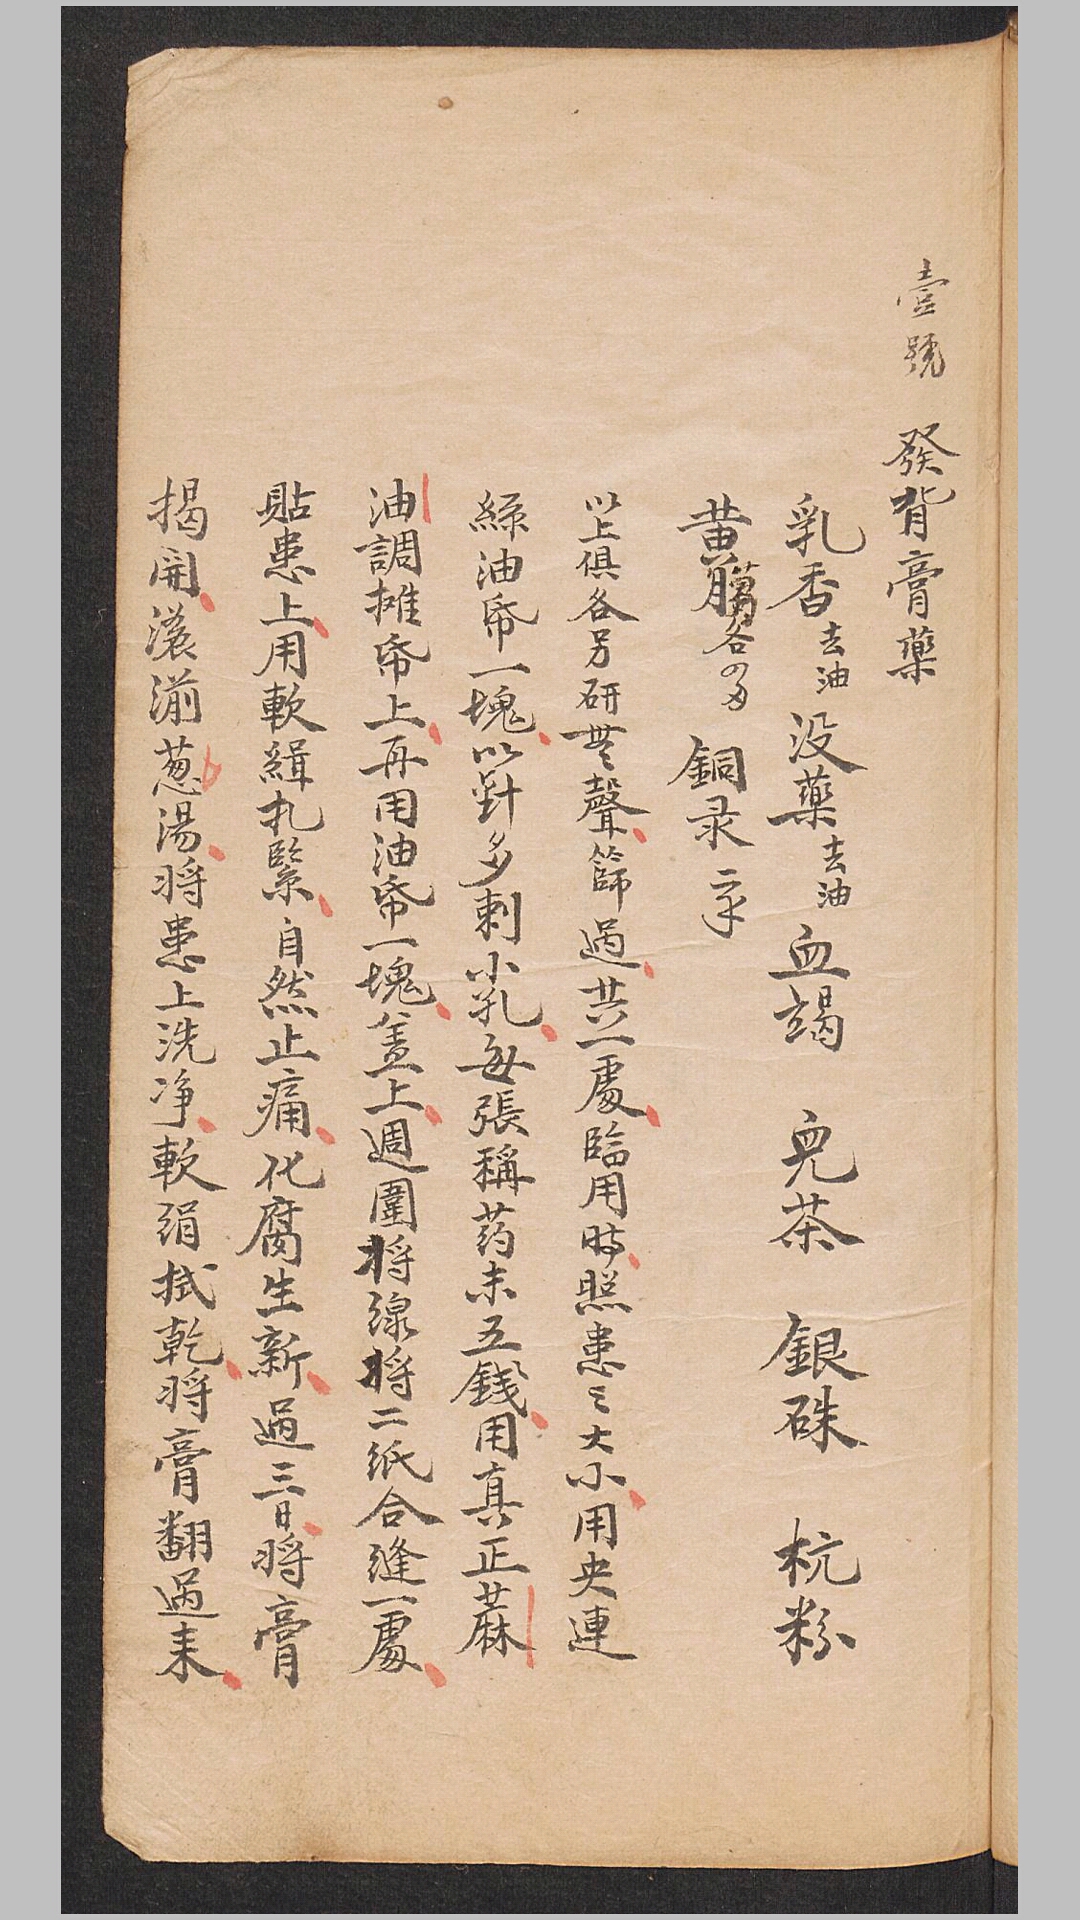 壹號 發背膏藥
乳香去油 没藥去油 血竭 兒茶 銀硃 杭粉
黄 各四 銅录
以上俱各另研無聲篩過共一處臨用時照患之大小用夾連
絲油帋一塊以針多刺小孔每張稱药末五錢用真正蔴
油調摊帋上再用油帋一塊盖上週圍将線将二紙合縫一處
貼患上用軟緝扎緊自然止痛化腐生新過三日将膏
揭開滚湔葱湯将患上洗净軟絹拭乾将膏翻過来